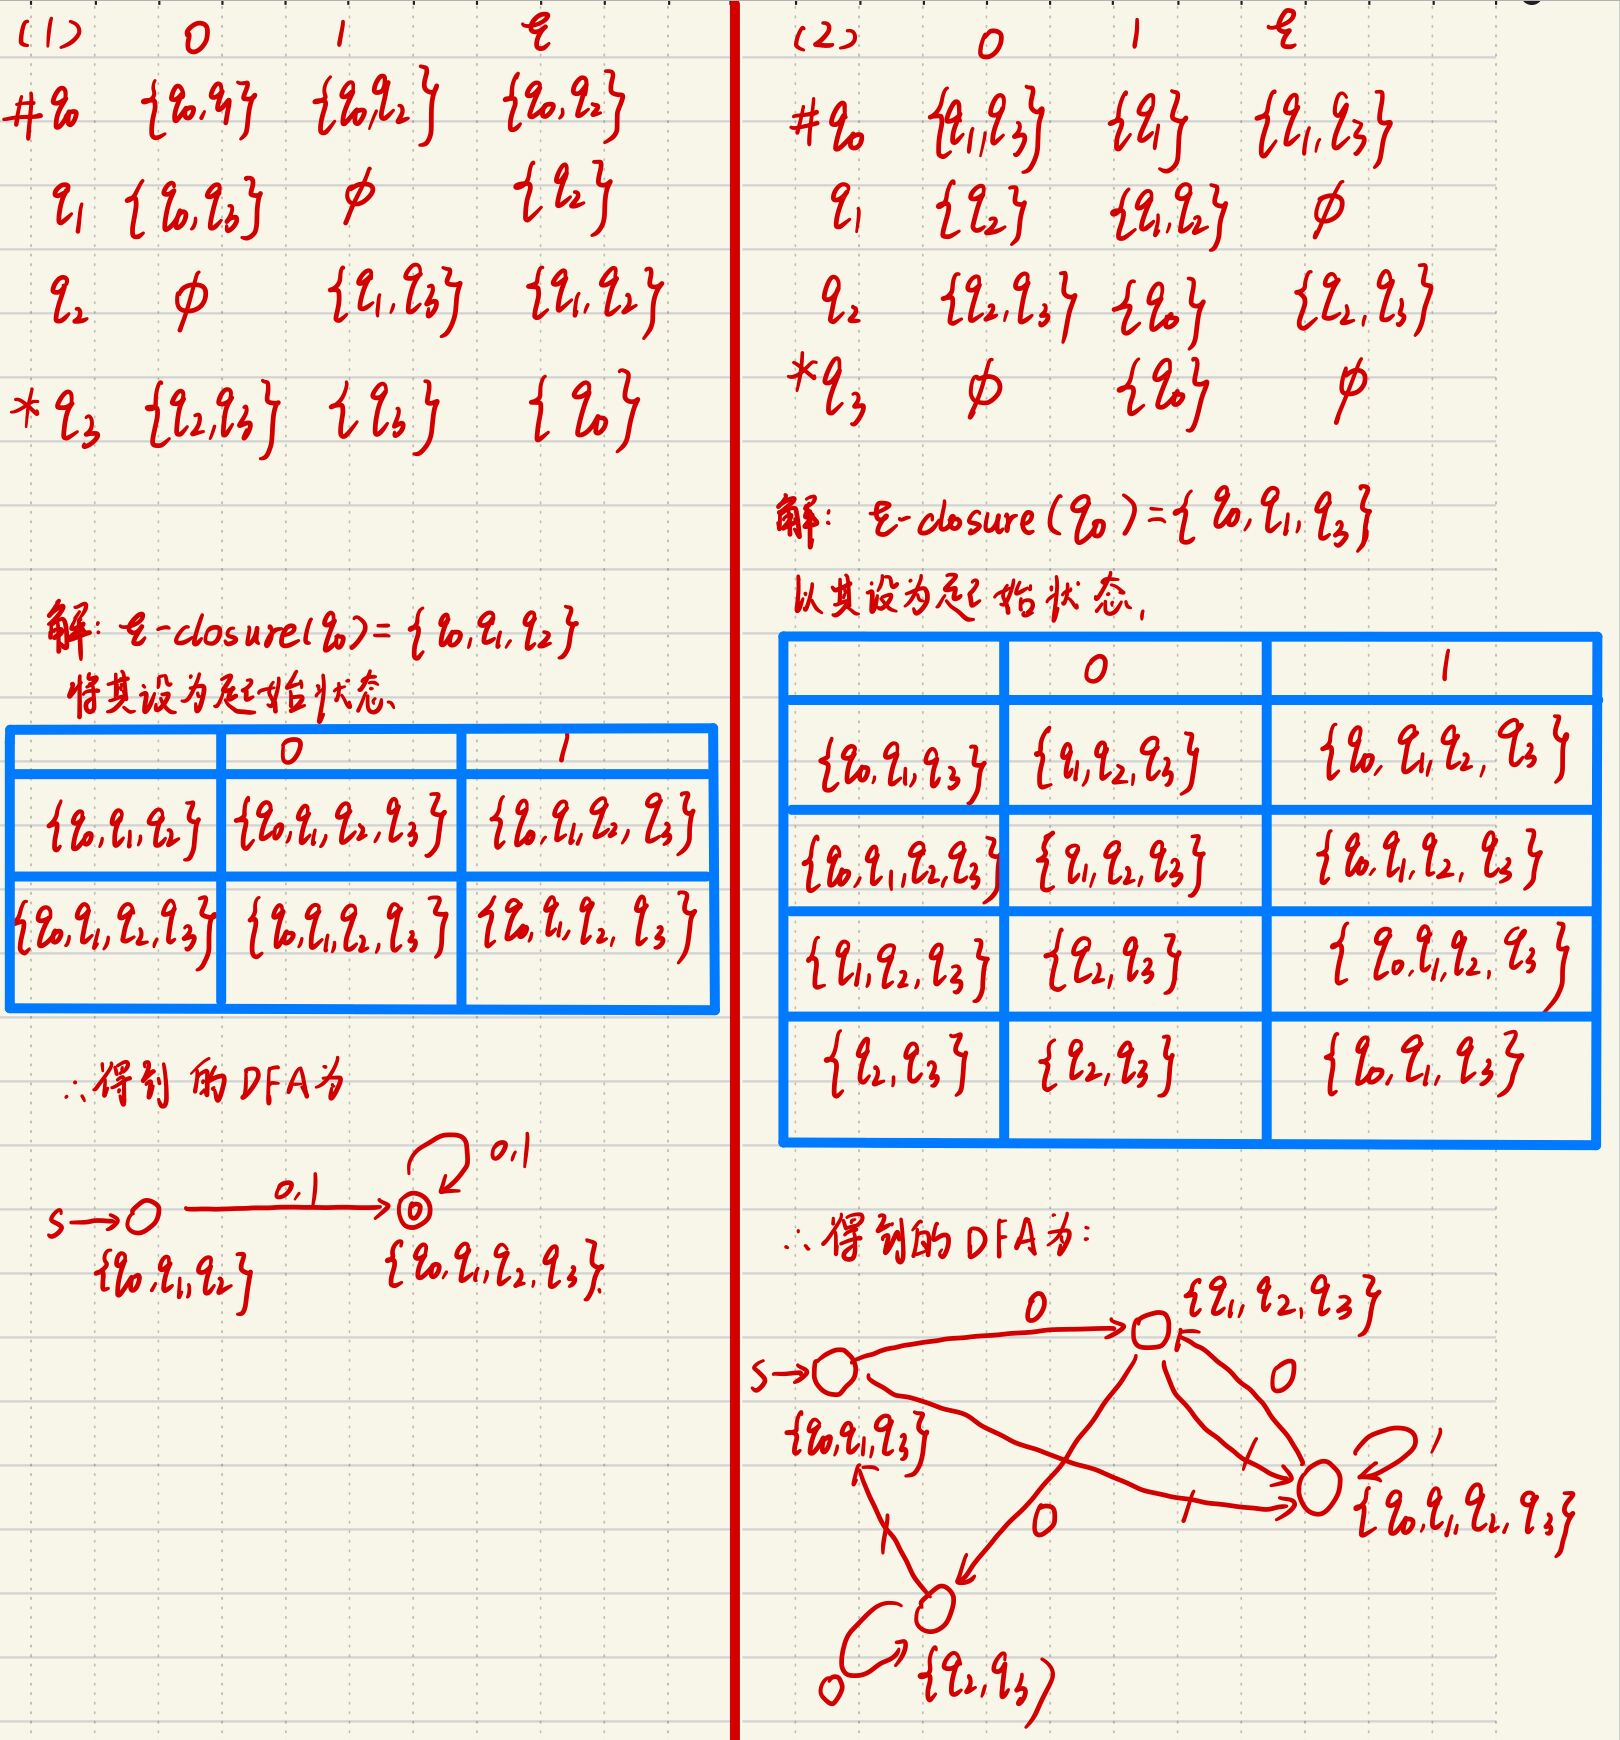 (1) 0 1 ε
#q₀ {q₀,q₁} {q₀,q₂} {q₀,q₂}
q₁ {q₀,q₃} ϕ {q₂}
q₂ ϕ {q₁,q₃} {q₁,q₂}
*q₃ {q₂,q₃} {q₃} {q₀}
解: ε-closure(q₀)={q₀,q₁,q₂}
将其设为起始状态、
0 1
{q₀,q₁,q₂} {q₀,q₁,q₂,q₃} {q₀,q₁,q₂,q₃}
{q₀,q₁,q₂,q₃} {q₀,q₁,q₂,q₃} {q₀,q₁,q₂,q₃}
∴得到的DFA为
0,1
S 0,1
{q₀,q₁,q₂} {q₀,q₁,q₂,q₃}
(2) 0 1 ε
#q₀ {q₁,q₃} {q₁} {q₁,q₃}
q₁ {q₂} {q₁,q₂} ϕ
q₂ {q₂,q₃} {q₀} {q₂,q₃}
*q₃ ϕ {q₀} ϕ
解: ε-closure(q₀)={q₀,q₁,q₃}
以其设为起始状态,
0 1
{q₀,q₁,q₃} {q₁,q₂,q₃} {q₀,q₁,q₂,q₃}
{q₀,q₁,q₂,q₃} {q₁,q₂,q₃} {q₀,q₁,q₂,q₃}
{q₁,q₂,q₃} {q₂,q₃} {q₀,q₁,q₂,q₃}
{q₂,q₃} {q₂,q₃} {q₀,q₁,q₃}
∴得到的DFA为:
0 {q₁,q₂,q₃}
S 0
{q₀,q₁,q₃} 1 1
1 0 1 {q₀,q₁,q₂,q₃}
0 {q₂,q₃)